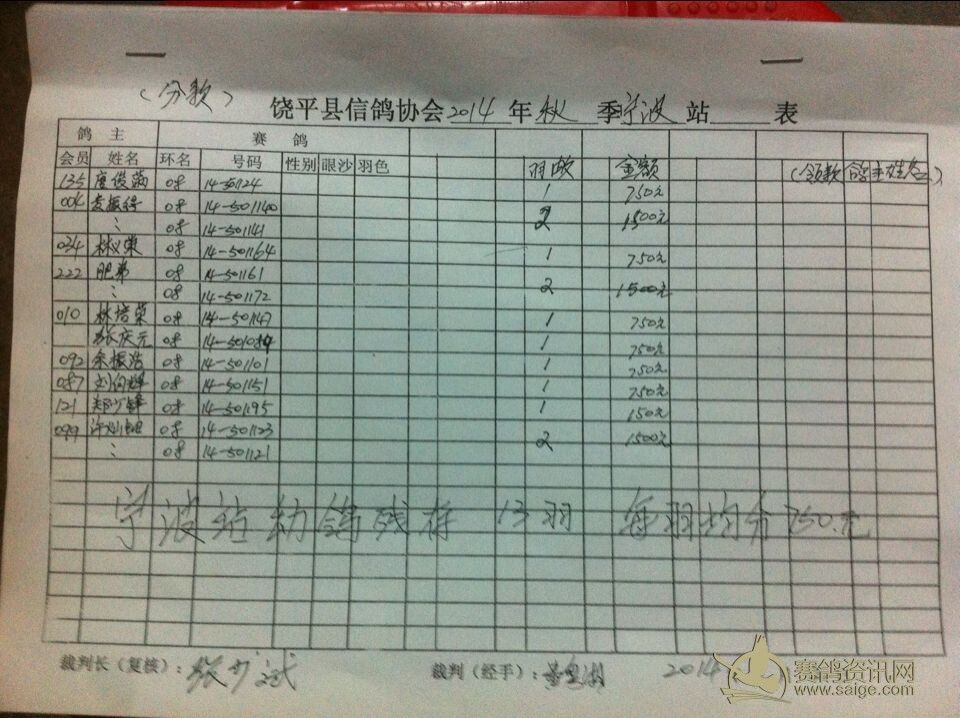 (分款)
饶平县信鸽协会2014年秋季宁波站 表
鸽主 赛鸽
会员 姓名 环名 号码 性别 眼沙 羽色 羽数 金额 (领款鸽主姓名)
135 08 14-50124 1 750元
004 08 14-501140
08 14-501141 2 1500元
034 林义荣 08 14-501164 1 750元
222 肥弟 08 14-501161
08 14-501172 2 1500元
010 林培荣 08 14-501147 1 750元
张庆元 08 1 750元
092 余振浩 08 14-501101 1 750元
087 08 14-501151 1 750元
121 08 14-501195 1 150元
099 08 14-501123 2 1500元
08 14-501121
宁波站幼鸽残存 13羽 每羽均分750元
裁判长(复核): 裁判(经手): 2014
赛鸽资讯网
www.saige.com